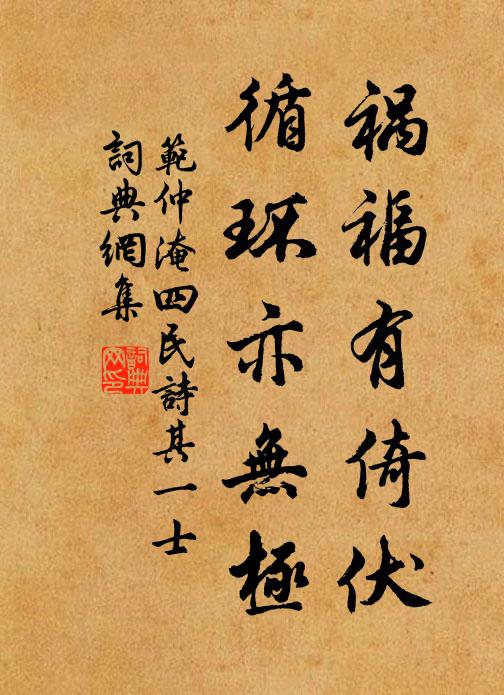 祸福有倚伏
循环亦無極
範仲淹四民詩其一士
詞典網集
詞典网印